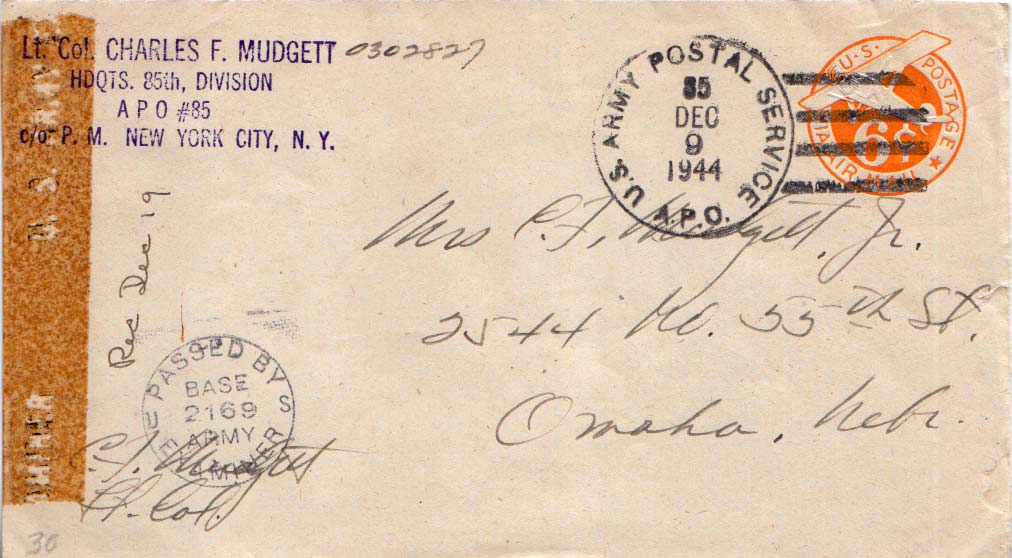 Lt. Col. CHARLES F. MUDGETT 0302827
HDQTS. 85th, DIVISION
A P O #85
c/o P. M. NEW YORK CITY, N. Y.
U.S. ARMY POSTAL SERVICE
A.P.O.
85
DEC
9
1944
U.S. POSTAGE
VIA AIR MAIL
6¢
Mrs C. F. Mudgett, Jr.
2544 No. 55th St.
Omaha, Nebr.
Rec Dec 19
PASSED BY
BASE
2169
ARMY
EXAMINER
U S
C. F. Mudgett
Lt. Col.
U. S. ARMY
30